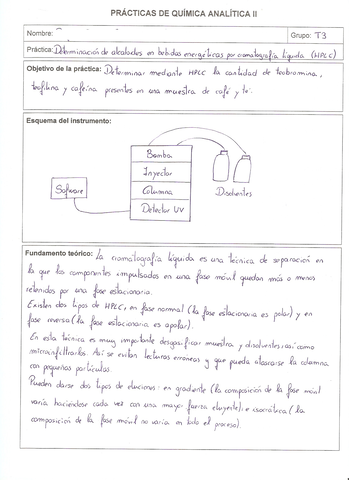 PRÁCTICAS DE QUÍMICA ANALÍTICA II
Nombre:
Grupo: T3
Práctica: Determinación de alcaloides en bebidas energéticas por cromatografía líquida (HPLC)
Objetivo de la práctica: Determinar mediante HPLC la cantidad de teobromina,
teofilina y cafeína presentes en una muestra de café y té.
Esquema del instrumento:
Bomba
Inyector
Columna
Detector UV
Software
Disolventes
Fundamento teórico: La cromatografía líquida es una técnica de separación en
la que los componentes impulsados en una fase móvil quedan más o menos
retenidos por una fase estacionaria.
Existen dos tipos de HPLC, en fase normal (la fase estacionaria es polar) y en
fase reversa (la fase estacionaria es apolar).
En esta técnica es muy importante desgasificar muestra y disolventes, así como
microinfiltrarlos. Así se evitan lecturas erróneas y que pueda atascarse la columna
con pequeñas partículas.
Pueden darse dos tipos de eluciones: en gradiente (la composición de la fase móvil
varía haciéndose cada vez con una mayor fuerza eluyente) e isocrática (la
composición de la fase móvil no varía en todo el proceso).